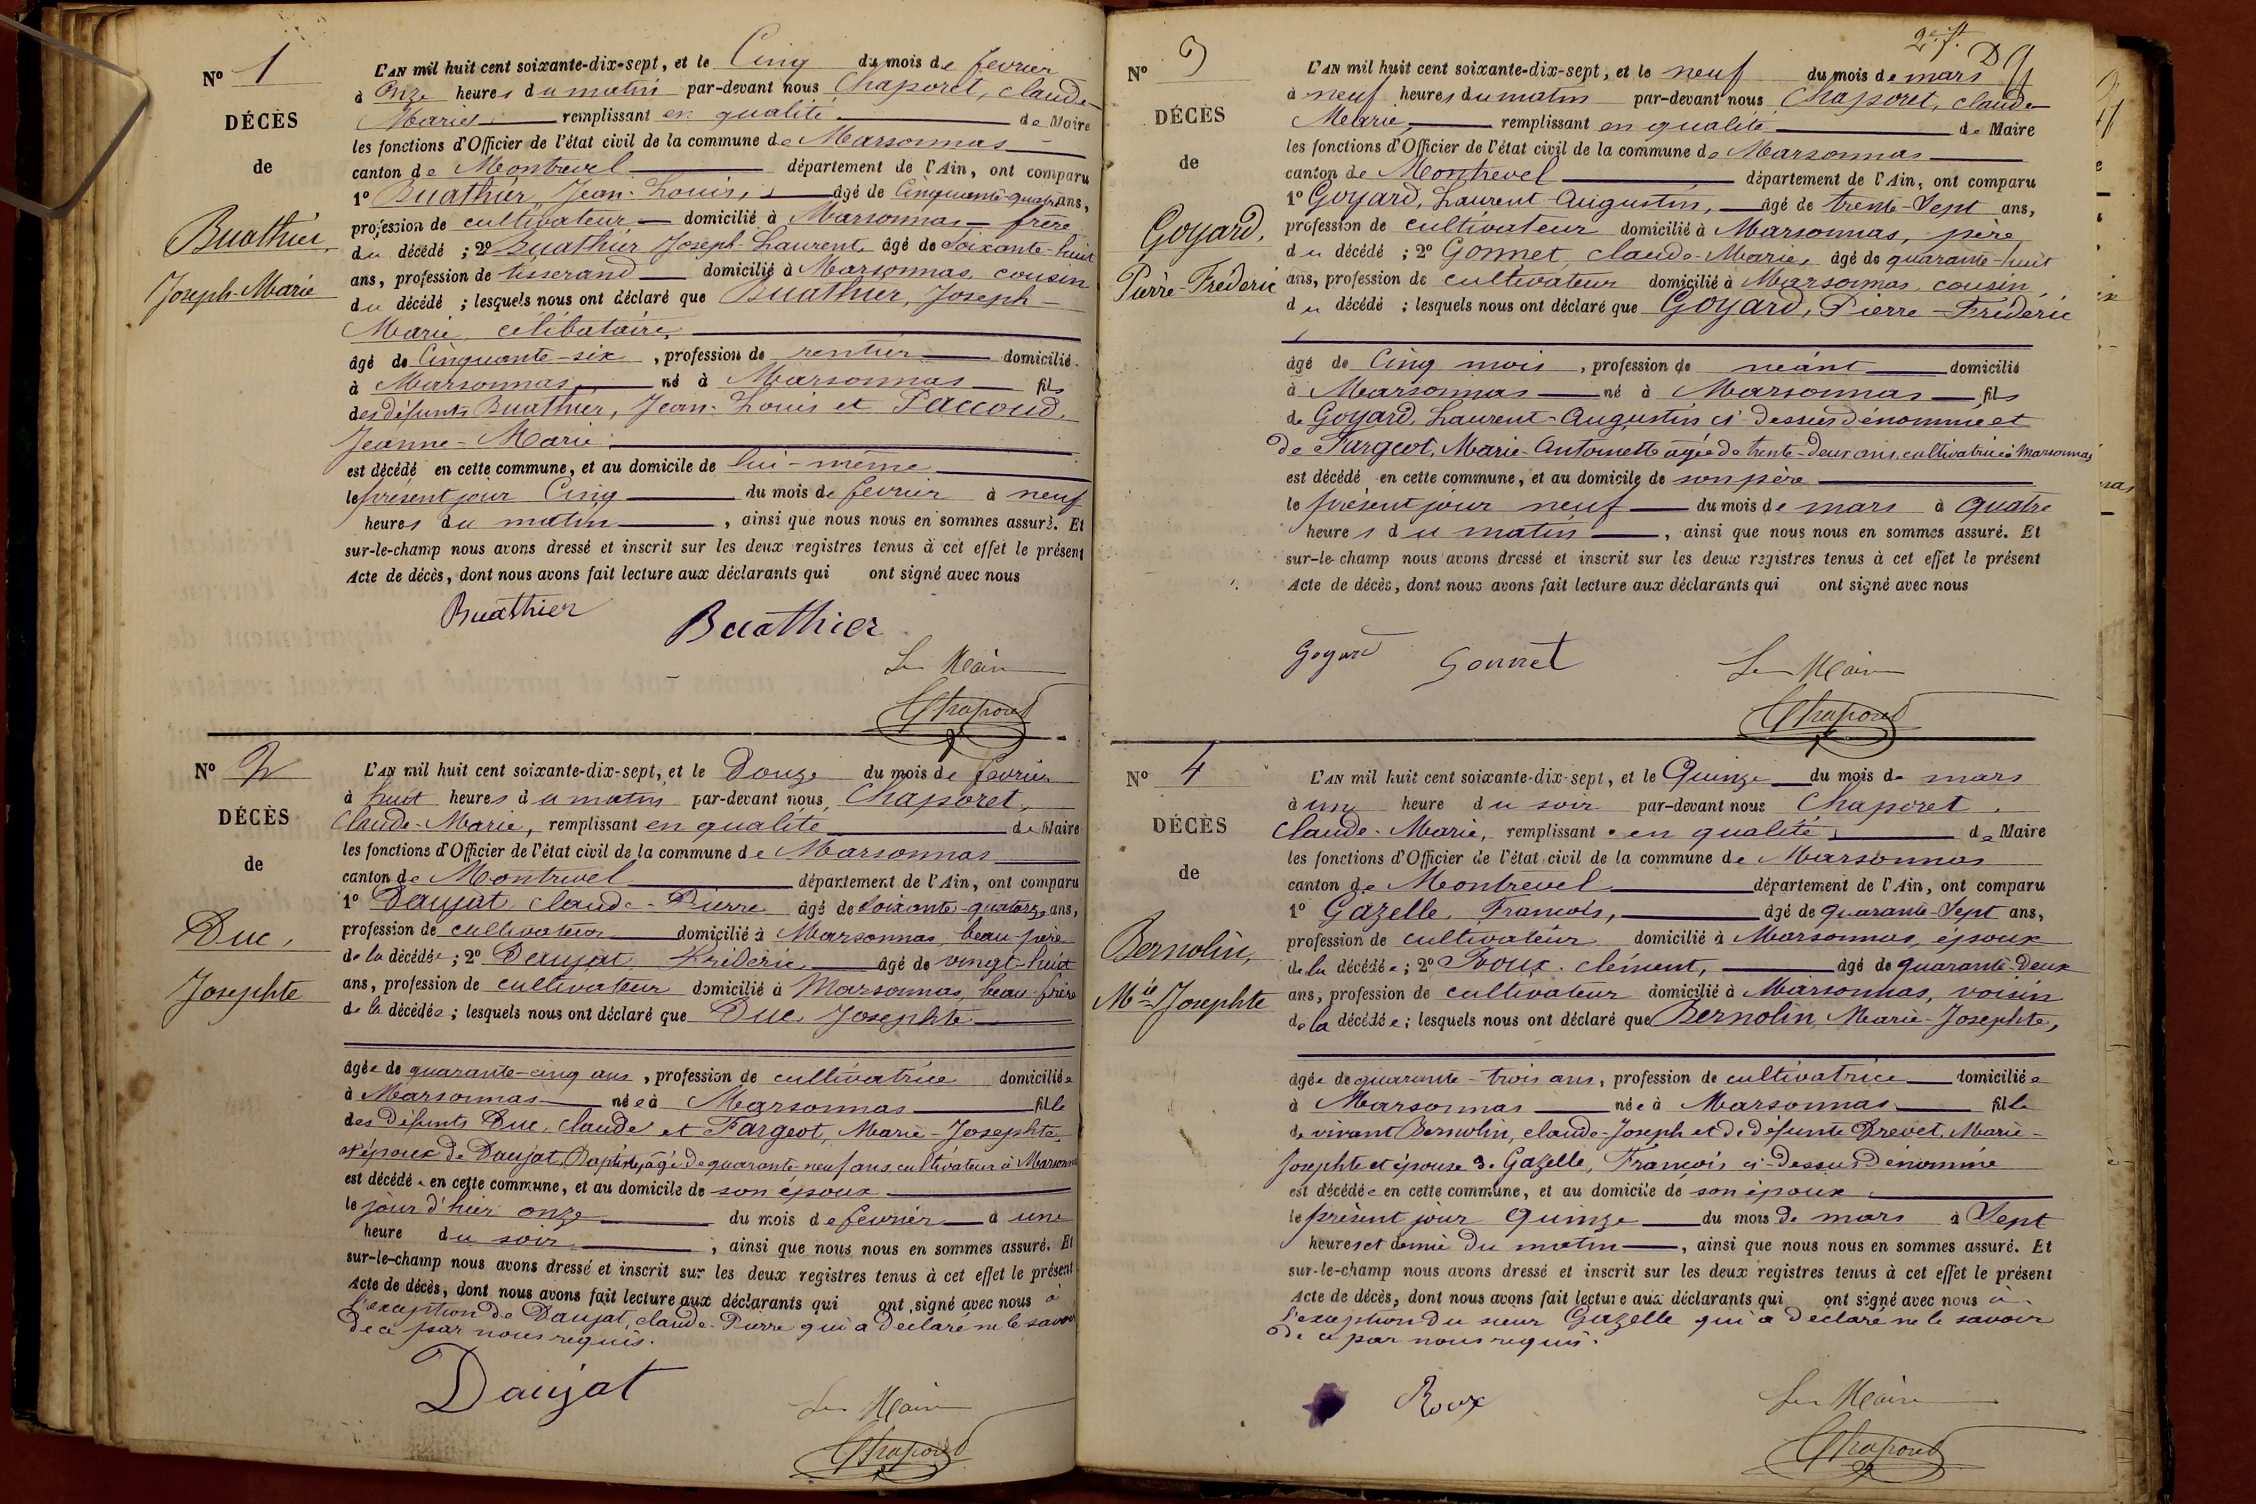 Nº 1
DÉCÈS
de
Buathier,
Joseph-Marie
L'AN mil huit cent soixante-dix-sept, et le Cinq du mois de fevrier
à Onze heures du matin par-devant nous Chaporet, Claude
Marie remplissant en qualité de Maire
les fonctions d'Officier de l'état civil de la commune de Marsonnas
canton de Montrevel département de l'Ain, ont comparu
1º Buathier, Jean-Louis, âgé de Cinquante-quatre ans,
profession de cultivateur domicilié à Marsonnas frère
du décédé ; 2º Buathier Joseph-Laurent, âgé de Soixante-huit
ans, profession de tisserand domicilié à Marsonnas, cousin
du décédé ; lesquels nous ont déclaré que Buathier, Joseph-
Marie, célibataire,
âgé de Cinquante-six , profession de rentier domicilié
à Marsonnas né à Marsonnas fils
des défunts Buathier, Jean-Louis et Paccoud,
Jeanne-Marie
est décédé en cette commune, et au domicile de lui-même
le présent jour Cinq du mois de fevrier à neuf
heures du matin , ainsi que nous nous en sommes assuré. Et
sur-le-champ nous avons dressé et inscrit sur les deux registres tenus à cet effet le présent
Acte de décès, dont nous avons fait lecture aux déclarants qui ont signé avec nous
Buathier Buathier
Le Maire
Chaporet
Nº 2
DÉCÈS
de
Duc,
Josephte
L'AN mil huit cent soixante-dix-sept, et le Douze du mois de fevrier
à huit heures du matin par-devant nous, Chaporet,
Claude-Marie, remplissant en qualité de Maire
les fonctions d'Officier de l'état civil de la commune de Marsonnas
canton de Montrevel département de l'Ain, ont comparu
1º Daujat, Claude-Pierre âgé de Soixante-quatorze ans,
profession de cultivateur domicilié à Marsonnas, beau-père
de la décédée ; 2º Daujat, Frédéric âgé de vingt-huit
ans, profession de cultivateur domicilié à Marsonnas, beau-frère
de la décédée ; lesquels nous ont déclaré que Duc, Josephte
âgée de quarante-cinq ans , profession de cultivatrice domiciliée
à Marsonnas née à Marsonnas fille
des défunts Duc, Claude et Fargeot, Marie-Josephte,
et épouse de Daujat, Baptiste, âgé de quarante-neuf ans, cultivateur à Marsonnas
est décédée en cette commune, et au domicile de son époux
le jour d'hier onze du mois de fevrier à une
heure du soir , ainsi que nous nous en sommes assuré. Et
sur-le-champ nous avons dressé et inscrit sur les deux registres tenus à cet effet le présent
Acte de décès, dont nous avons fait lecture aux déclarants qui ont signé avec nous à
l'exception de Daujat, Claude-Pierre qui a déclaré ne le savoir
de ce par nous requis.
Daujat
Le Maire
Chaporet
Nº 3
DÉCÈS
de
Goyard,
Pierre-Fréderic
L'AN mil huit cent soixante-dix-sept, et le neuf du mois de mars
à neuf heures du matin par-devant nous Chaporet, Claude
Marie, remplissant en qualité de Maire
les fonctions d'Officier de l'état civil de la commune de Marsonnas
canton de Montrevel département de l'Ain, ont comparu
1º Goyard, Laurent-Augustin, âgé de trente-Sept ans,
profession de cultivateur domicilié à Marsonnas, père
du décédé ; 2º Gonnet, Claude-Marie, âgé de quarante-huit
ans, profession de cultivateur domicilié à Marsonnas, cousin
du décédé ; lesquels nous ont déclaré que Goyard, Pierre-Fréderic
âgé de Cinq mois , profession de néant domicilié
à Marsonnas né à Marsonnas fils
de Goyard, Laurent-Augustin ci-dessus dénommé et
de Fargeot, Marie-Antoinette âgée de trente-deux ans, cultivatrice à Marsonnas
est décédé en cette commune, et au domicile de son père
le présent jour neuf du mois de mars à quatre
heures du matin , ainsi que nous nous en sommes assuré. Et
sur-le-champ nous avons dressé et inscrit sur les deux registres tenus à cet effet le présent
Acte de décès, dont nous avons fait lecture aux déclarants qui ont signé avec nous
Goyard Gonnet Le Maire
Chaporet
Nº 4
DÉCÈS
de
Bernolin,
Mie Josephte
L'AN mil huit cent soixante-dix-sept, et le Quinze du mois de mars
à une heure du soir par-devant nous Chaporet,
Claude-Marie, remplissant en qualité de Maire
les fonctions d'Officier de l'état civil de la commune de Marsonnas
canton de Montrevel département de l'Ain, ont comparu
1º Gazelle, François, âgé de quarante-Sept ans,
profession de cultivateur domicilié à Marsonnas, époux
de la décédée ; 2º Roux, Clément, âgé de quarante-deux
ans, profession de cultivateur domicilié à Marsonnas, voisin
de la décédée ; lesquels nous ont déclaré que Bernolin, Marie-Josephte,
âgée de quarante-trois ans, profession de cultivatrice domiciliée
à Marsonnas née à Marsonnas fille
de vivant Bernolin, Claude-Joseph et de défunte Brevet, Marie-
Josephte et épouse de Gazelle, François ci-dessus dénommé
est décédée en cette commune, et au domicile de son époux
le présent jour Quinze du mois de mars à Sept
heures et demie du matin , ainsi que nous nous en sommes assuré. Et
sur-le-champ nous avons dressé et inscrit sur les deux registres tenus à cet effet le présent
Acte de décès, dont nous avons fait lecture aux déclarants qui ont signé avec nous à
l'exception du sieur Gazelle qui a déclaré ne le savoir
de ce par nous requis.
Roux
Le Maire
Chaporet